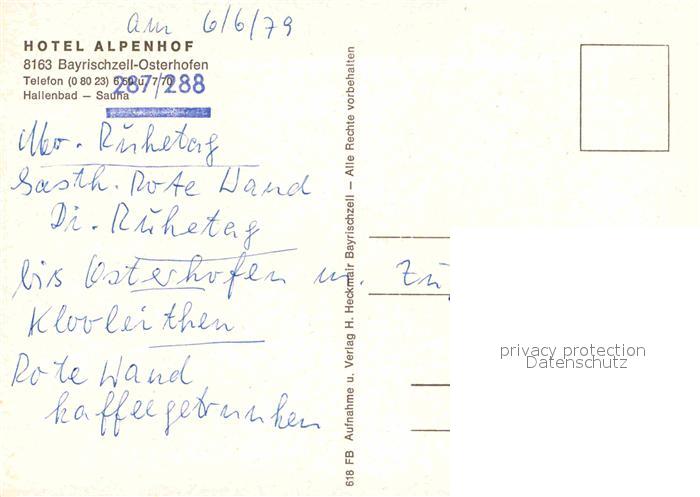 am 6/6/79
HOTEL ALPENHOF
8163 Bayrischzell-Osterhofen
Telefon (0 80 23) 6 50 u. 7 70
287/288
Hallenbad – Sauna
Mo. Ruhetag
Gasth. Rote Wand
Di. Ruhetag
bis Osterhofen m. Zug
Klooleithen
Rote Wand
kaffeegetrunken
618 FB Aufnahme u. Verlag H. Heckmair Bayrischzell – Alle Rechte vorbehalten
privacy protection
Datenschutz